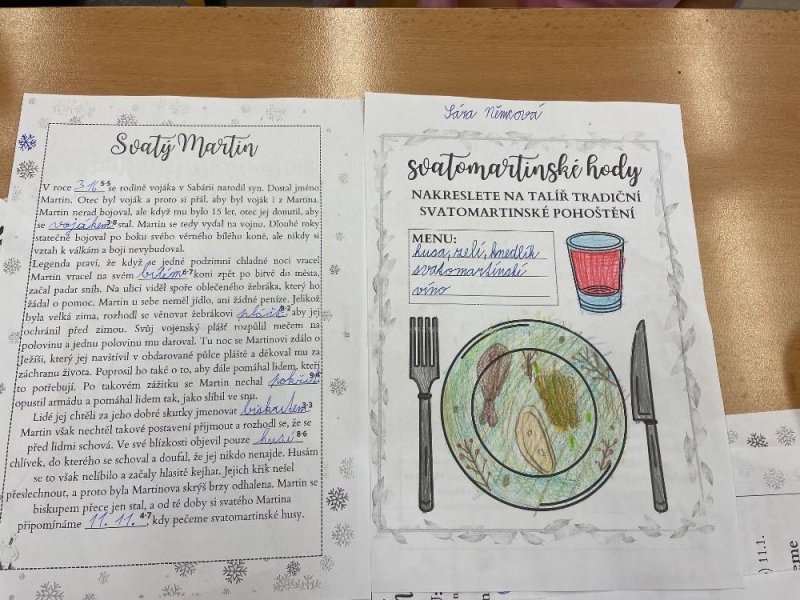 Svatý Martin
V roce 316 5-5 se rodině vojáka v Sabárii narodil syn. Dostal jméno
Martin. Otec byl voják a proto si přál, aby byl voják i z Martina.
Martin nerad bojoval, ale když mu bylo 15 let, otec jej donutil, aby
se vojákem 7-8 stal. Martin se tedy vydal na vojnu. Dlouhé roky
statečně bojoval po boku svého věrného bílého koně, ale nikdy si
vztah k válkám a boji nevybudoval.
Legenda praví, že když se jedné podzimní chladné noci vracel
Martin vracel na svém bílém 6-7 koni zpět po bitvě do města,
začal padat sníh. Na ulici viděl spoře oblečeného žebráka, který ho
žádal o pomoc. Martin u sebe neměl jídlo, ani žádné peníze. Jelikož
byla velká zima, rozhodl se věnovat žebrákovi plášť 8-2 aby jej
ochránil před zimou. Svůj vojenský plášť rozpůlil mečem na
polovinu a jednu polovinu mu daroval. Tu noc se Martinovi zdálo o
Ježíši, který jej navštívil v obdarované půlce pláště a děkoval mu za
záchranu života. Poprosil ho také o to, aby dále pomáhal lidem, kteří
to potřebují. Po takovém zážitku se Martin nechal pokřtít 9-4
opustil armádu a pomáhal lidem tak, jako slíbil ve snu.
Lidé jej chtěli za jeho dobré skutky jmenovat biskupem 3-3
Martin však nechtěl takové postavení přijmout a rozhodl se, že se
před lidmi schová. Ve své blízkosti objevil pouze husí 8-6
chlívek, do kterého se schoval a doufal, že jej nikdo nenajde. Husám
se to však nelíbilo a začaly hlasitě kejhat. Jejich křik nešel
přeslechnout, a proto byla Martinova skrýš brzy odhalena. Martin se
biskupem přece jen stal, a od té doby si svatého Martina
připomínáme 11. 11. 4-7, kdy pečeme svatomartinské husy.
Sára Němcová
svatomartinské hody
NAKRESLETE NA TALÍŘ TRADIČNÍ
SVATOMARTINSKÉ POHOŠTĚNÍ
MENU:
husa, zelí, knedlík
svatomartinské
víno
) 11.1.
eme